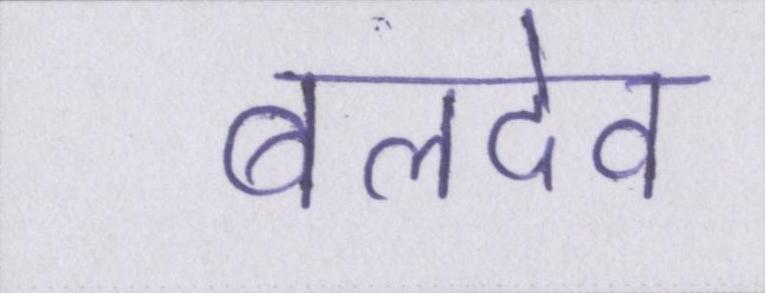 बलदेव